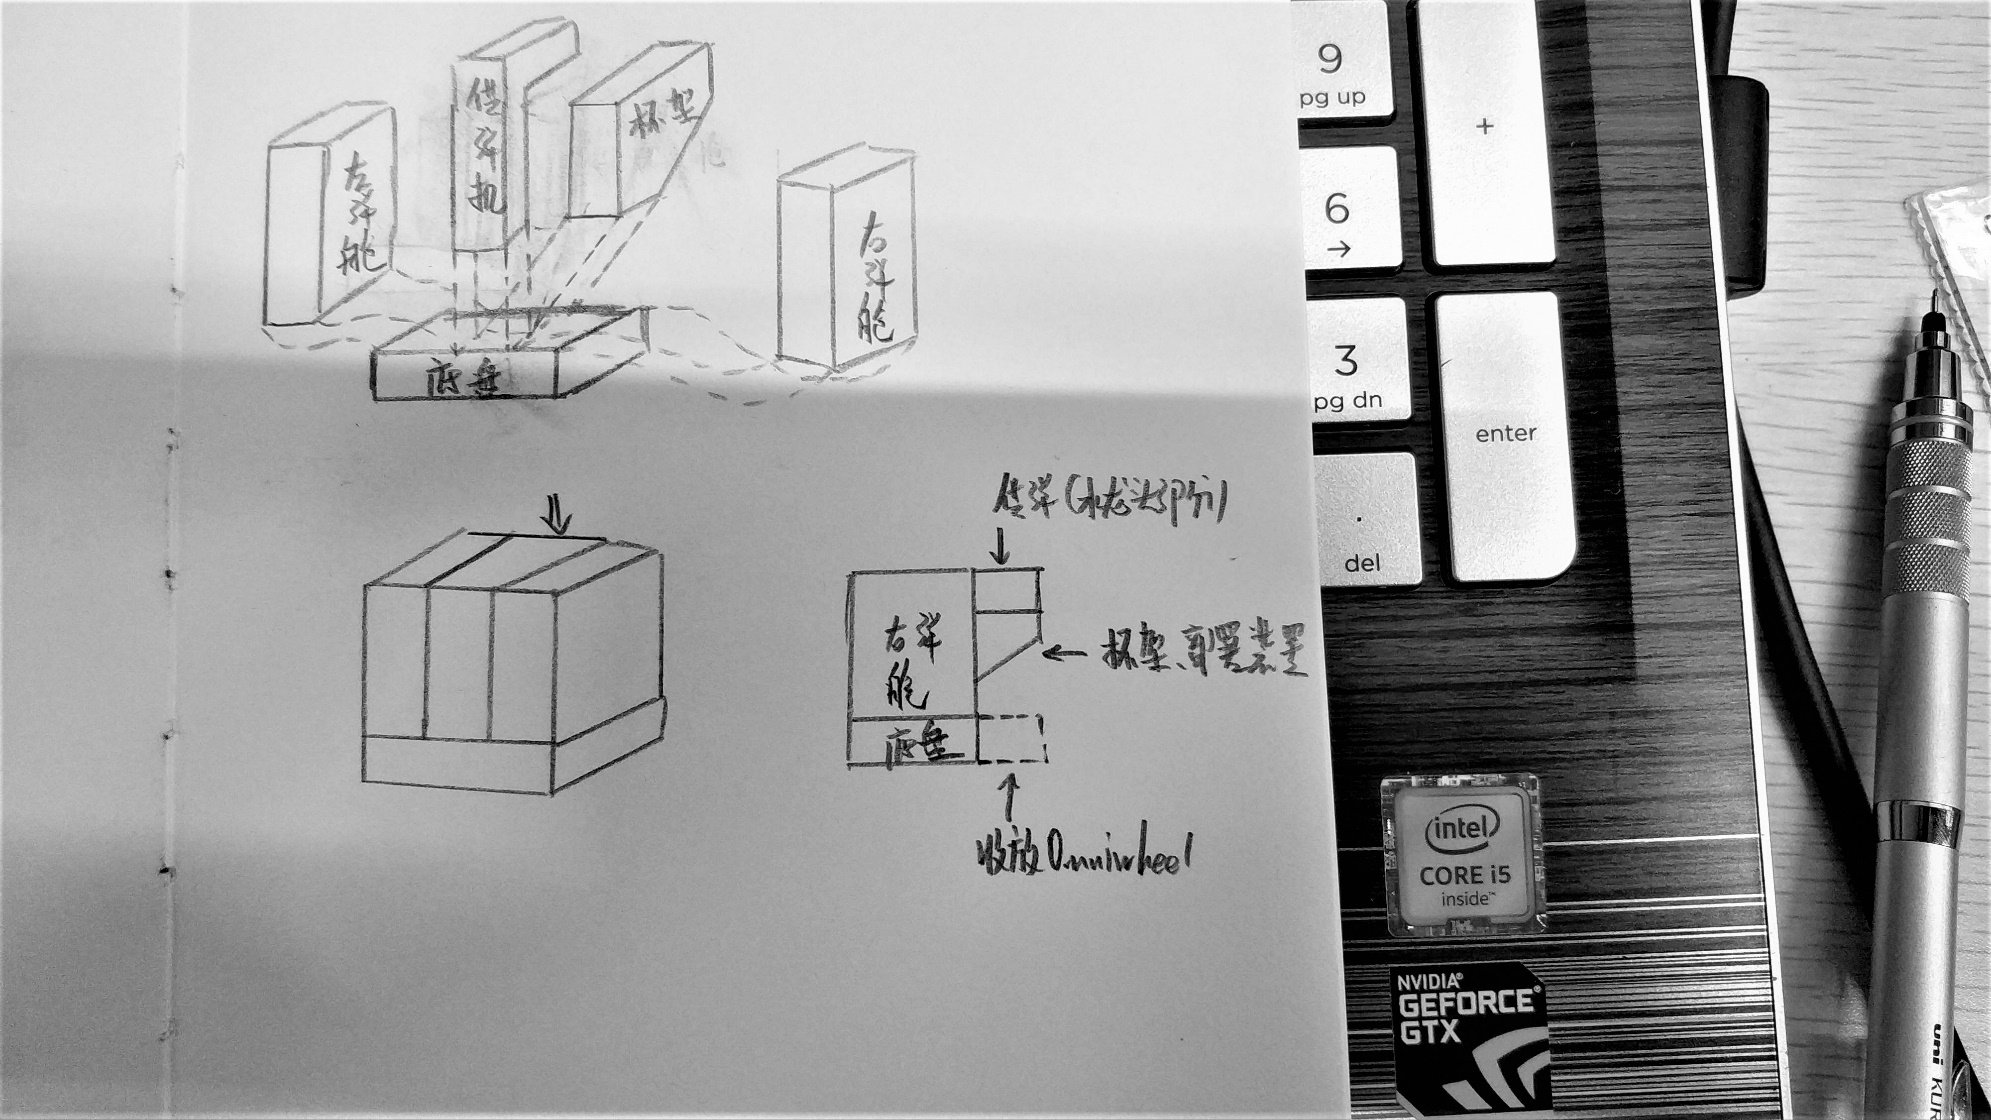 左弹舱
供弹机
杯架
右弹舱
底盘
供弹(水龙头部分)
右弹舱
杯架、配置装置
底盘
收放Omniwheel
9
pg up
+
6
→
3
pg dn
enter
.
del
intel
CORE i5
inside™
NVIDIA®
GEFORCE®
GTX
uni KUR